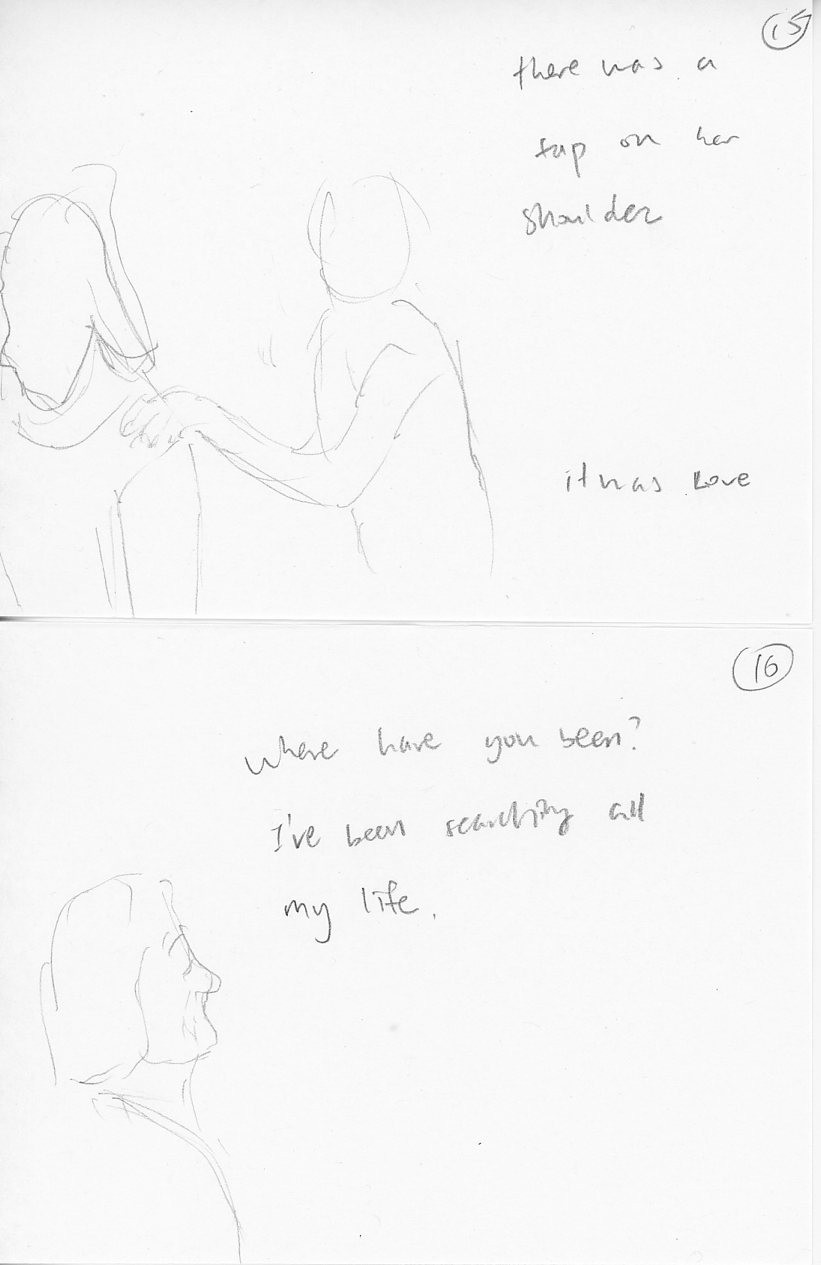 15
there was a
tap on her
shoulder
it was Love
16
Where have you been?
I've been searching all
my life.